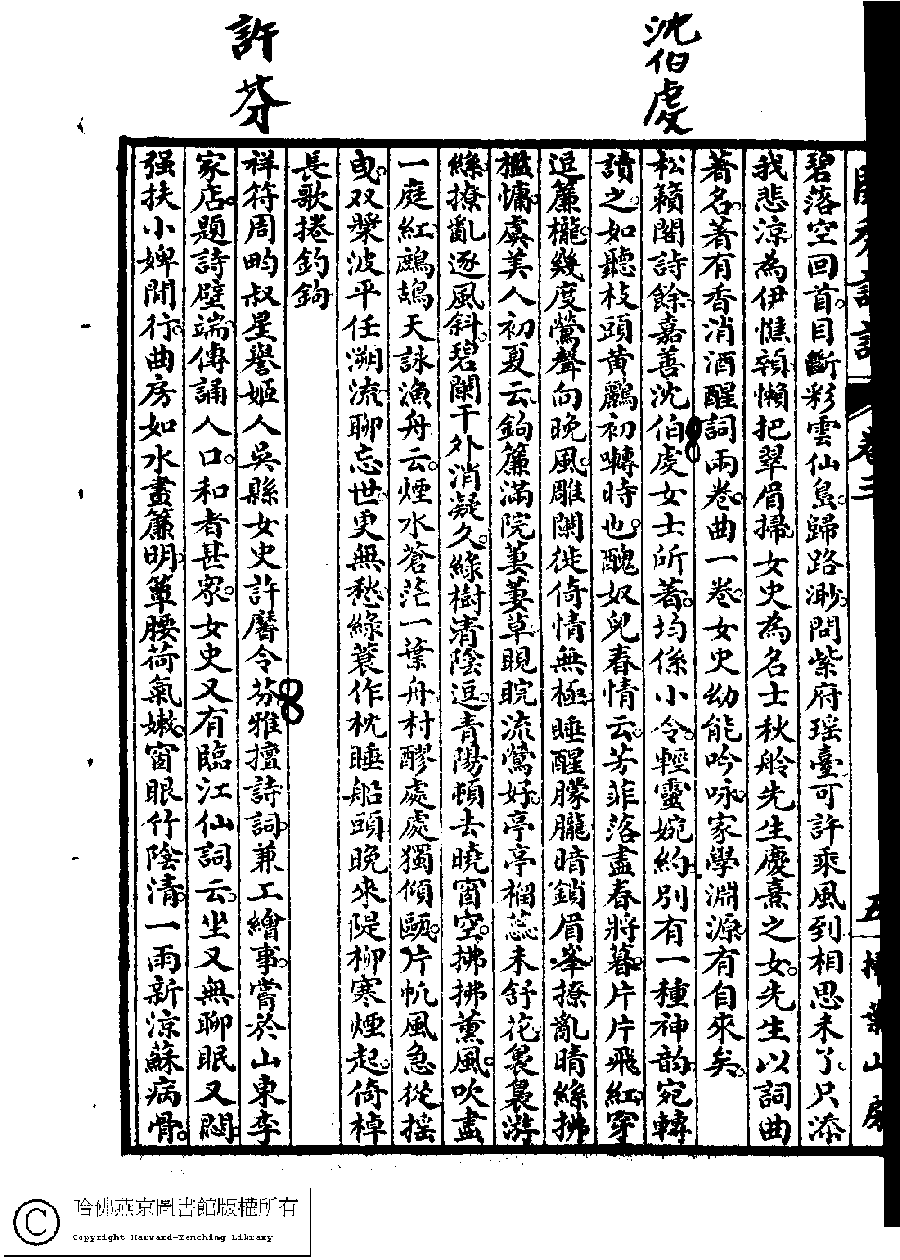 沈伯虔
許芬
閨秀詞話 卷三 五 掃葉山房
碧落空回首。目斷彩雲仙島。歸路渺。問紫府瑶臺。可許乘風到。相思未了。只添
我悲涼。為伊憔顇。懶把翠眉掃。女史為名士秋舲先生慶熹之女。先生以詞曲
著名。著有香消酒醒詞兩卷。曲一卷。女史幼能吟咏。家學淵源。有自來矣。
松籟閣詩餘。嘉善沈伯虔女士所著。均係小令。輕靈婉約。別有一種神韵。宛轉
讀之。如聽枝頭黄鸝初囀時也。醜奴兒春情云。芳菲落盡春將暮。片片飛紅。穿
過簾櫳。幾度鶯聲向晚風。雕闌徙倚情無極。睡醒朦朧。暗鎖眉峯。撩亂晴絲拂
檻慵。虞美人初夏云。鉤簾滿院萋萋草。睍睆流鶯好。亭亭榴蕊未舒花。裊裊游
絲撩亂逐風斜。碧闌干外消凝久。綠樹清陰逗。青陽頓去曉窗空。拂拂薰風。吹盡
一庭紅。鷓鴣天詠漁舟云。煙水蒼茫一葉舟。村醪處處獨傾甌。片帆風急從摇
曳。双槳波平任溯流。聊忘世。更無愁。綠蓑作枕睡船頭。晚來隄柳寒煙起。倚棹
長歌捲釣鉤
祥符周畇叔星譽姬人吳縣女史許麐令芬雅擅詩詞。兼工繪事。嘗於山東李
家店。題詩壁端。傳誦人口。和者甚衆。女史又有臨江仙詞云。坐又無聊眠又悶。
强扶小婢閒行。曲房如水畫簾明。簟腰荷氣嫩。窗眼竹陰清。一雨新涼蘇病骨。
哈佛燕京圖書館版權所有
Copyright Harvard-Yenching Library